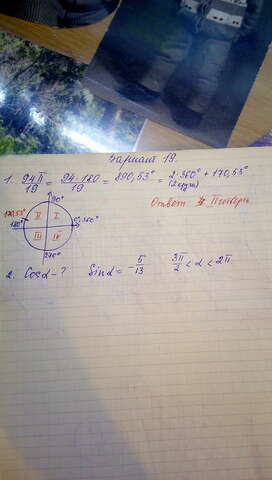 Вариант 19.
1. 94π/19 = 94·180/19 = 890,53° = 2·360° + 170,53°
(2 круга)
90°
Ответ II четверть
170,53° II I 0° 360°
180°
III IV
270°
2. Cosα-? Sinα = -5/13 3π/2 < α < 2π